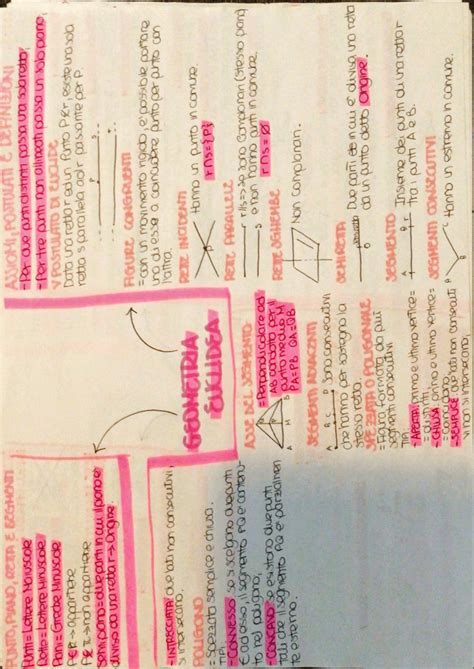 GEOMETRIA
EUCLIDEA
PUNTO, PIANO, RETTA E SEGMENTI
Punti = Lettere Maiuscole
Rette = Lettere Minuscole
Piani = Greche Minuscole
P ∈ r → appartiene
P ∉ r → non appartiene
Semipiano = due parti in cui il piano è
diviso da una retta → Origine.
ASSIOMI, POSTULATI E DEFINIZIONI
- Per due punti distinti passa una sola retta.
- Per tre punti non allineati passa un solo piano.
V POSTULATO DI EUCLIDE
Data una retta r ed un Punto P ∉ r esiste una sola
retta s parallela ad r passante per P.
FIGURE CONGRUENTI
= con un movimento rigido, è possibile portare
una di esse a coincidere punto per punto con
l'altra.
RETTE INCIDENTI
Hanno un punto in comune.
r ∩ s = {P}
RETTE PARALLELE
r // s => Sono Complanari (stesso piano)
e non hanno punti in comune.
r ∩ s = ∅
RETTE SGHEMBE
Non complanari.
SEMIRETTA
Due parti in cui è divisa una retta
da un punto detto Origine.
SEGMENTO
A B r
Insieme dei punti di una retta r
tra i punti A e B.
SEGMENTI CONSECUTIVI
Hanno un estremo in comune.
ASSE DEL SEGMENTO
= Perpendicolare ad
AB condotta per il
punto medio M
PA = PB QA = QB
SEGMENTI ADIACENTI
Sono consecutivi
che hanno per sostegno la
stessa retta.
SPEZZATA O POLIGONALE
= Figura formata da più
segmenti consecutivi
TIPI:
- APERTA: primo e ultimo vertice =
distinti.
- CHIUSA: primo e ultimo vertice =
coincidono
- SEMPLICE: due lati non consecuti
vi non si intersecano.
- INTRECCIATA: due lati non consecutivi,
si intersecano.
POLIGONO
= Spezzata semplice e chiusa.
TIPI:
- CONVESSO: se si scelgono due punti
P e Q ad esso, il segmento PQ è contenu-
to nel poligono.
- CONCAVO: Se esistono due punti
tali che il segmento PQ è parzialmen
te esterno.